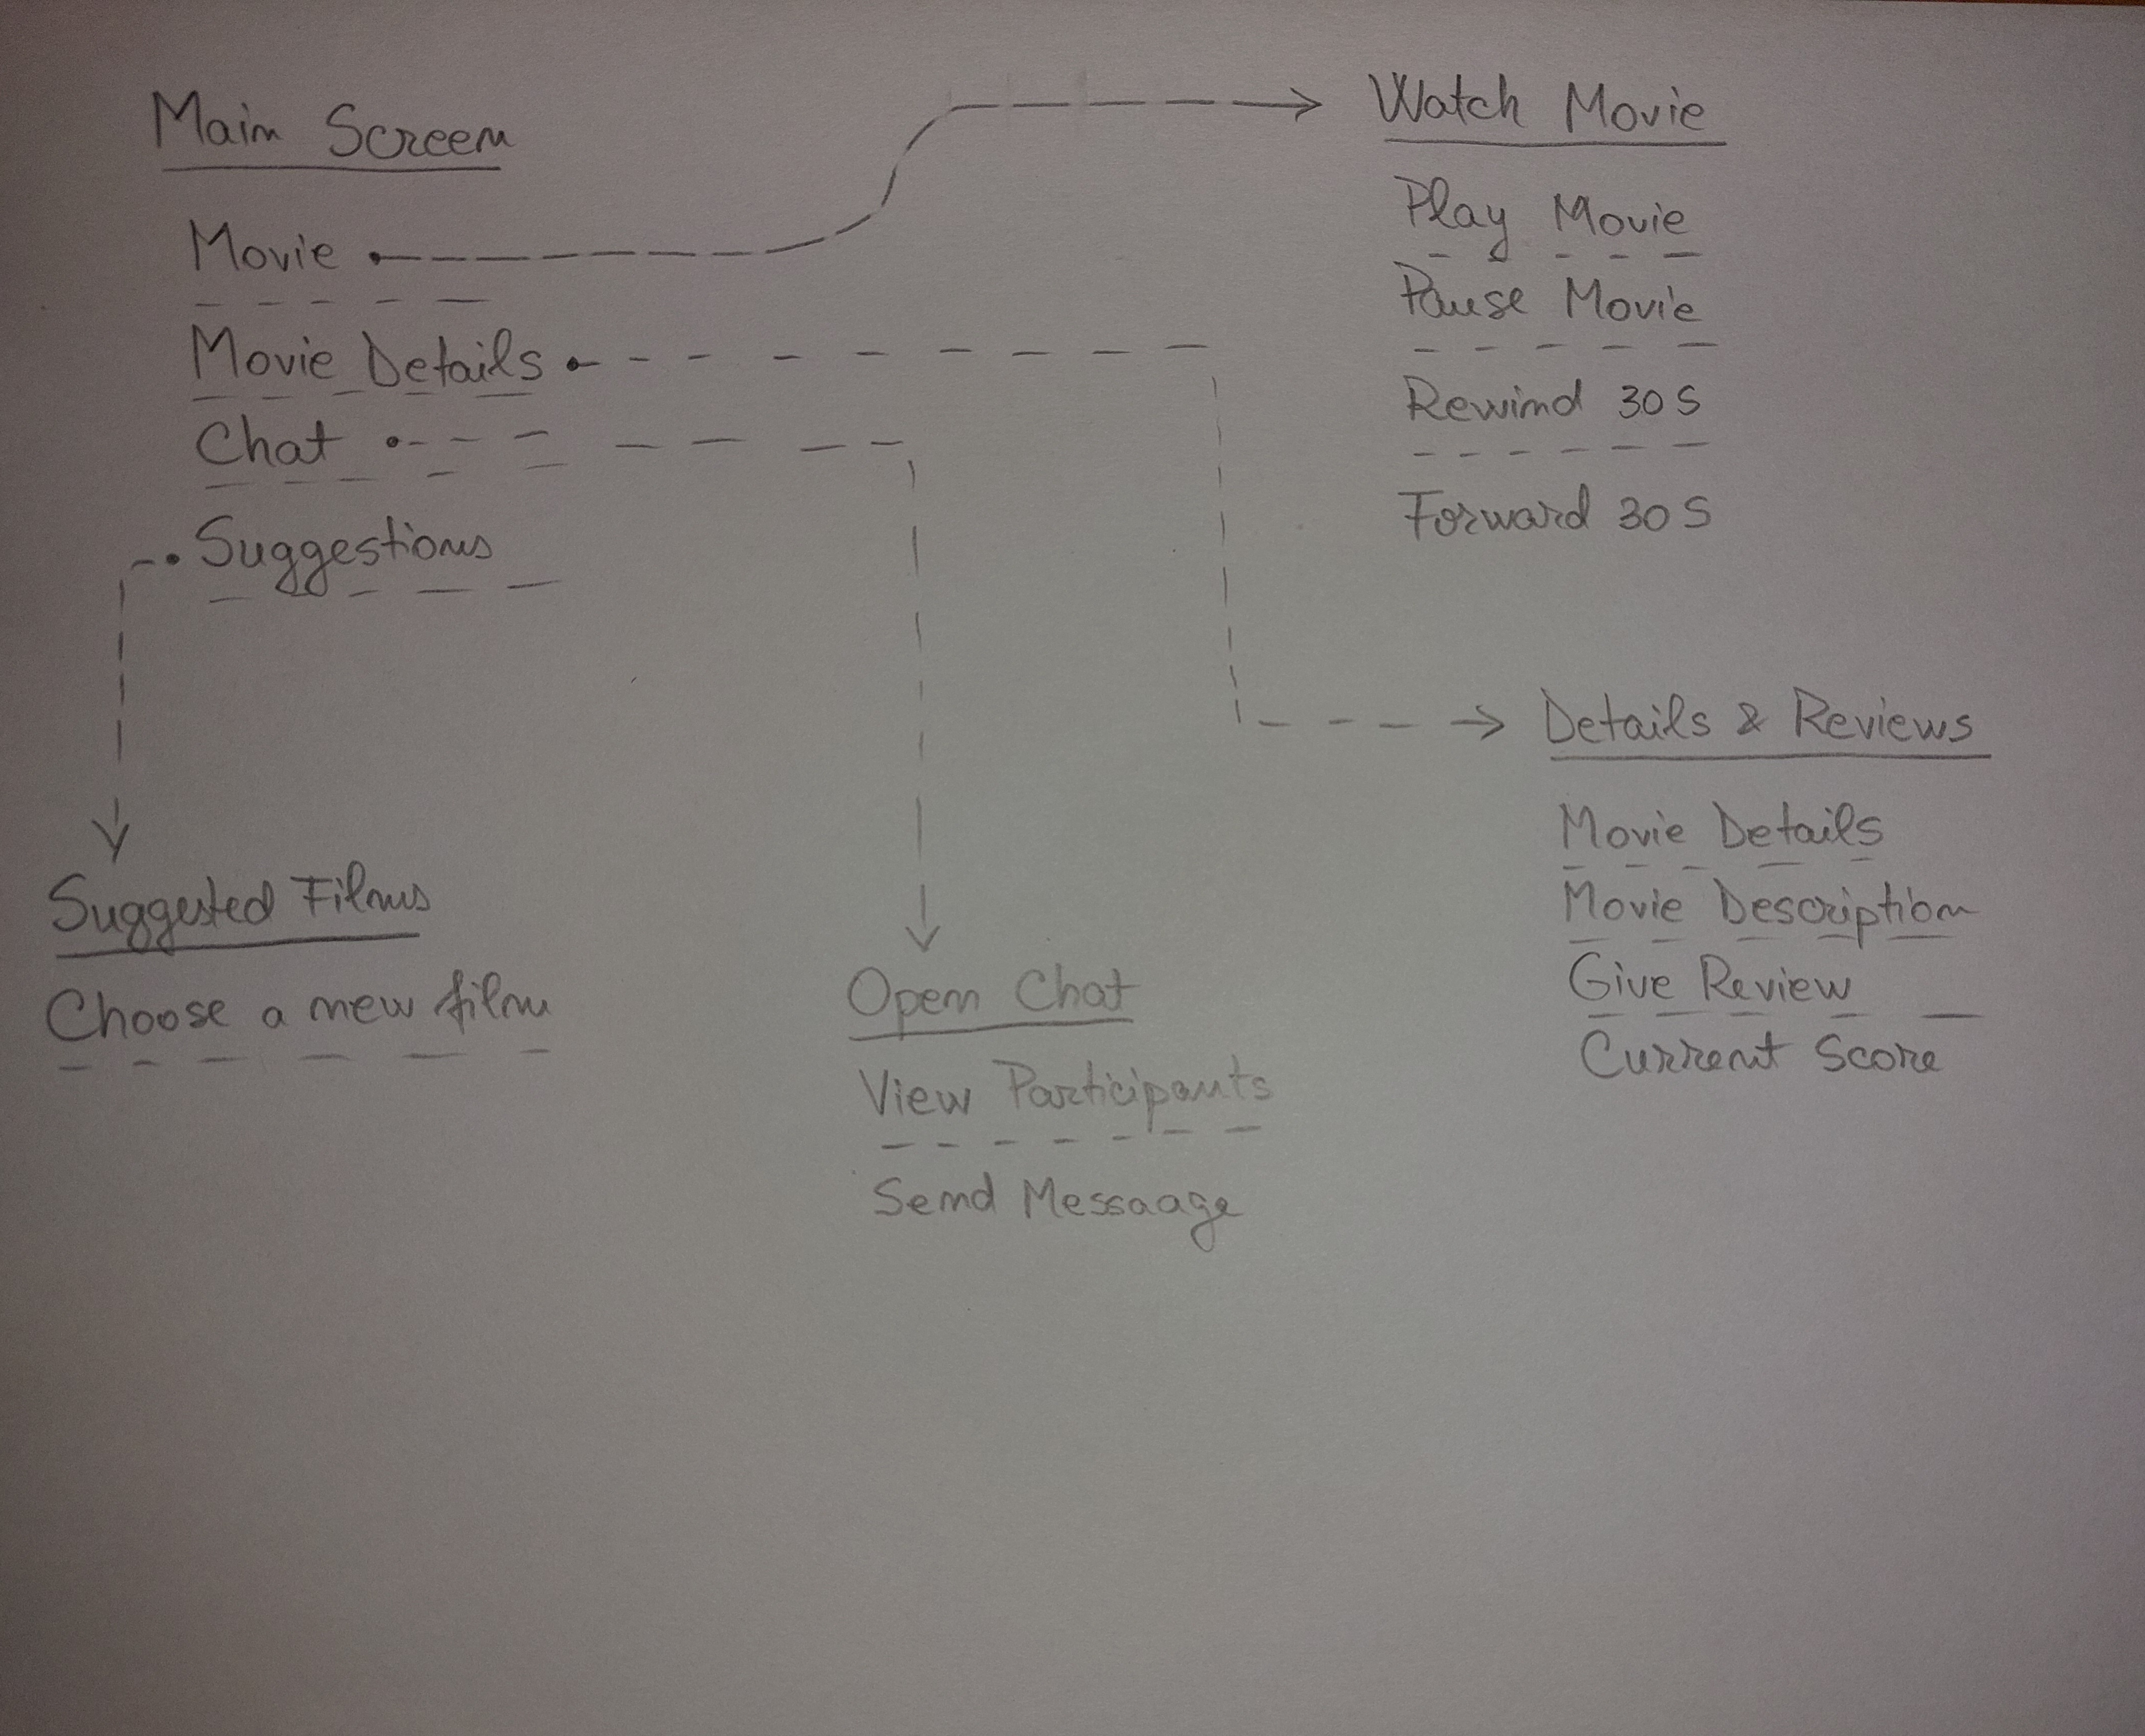 Main Screen
Movie
Movie Details
Chat
Suggestions
Watch Movie
Play Movie
Pause Movie
Rewind 30 S
Forward 30 S
Details & Reviews
Movie Details
Movie Description
Give Review
Current Score
Suggested Films
Choose a new film
Open Chat
View Participants
Send Messaage